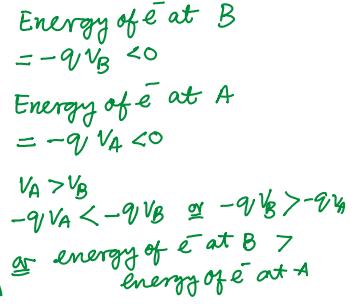 Energy of e⁻ at B
= -q V_B < 0
Energy of e⁻ at A
= -q V_A < 0
V_A > V_B
-q V_A < -q V_B or -q V_B > -q V_A
or energy of e⁻ at B >
energy of e⁻ at A